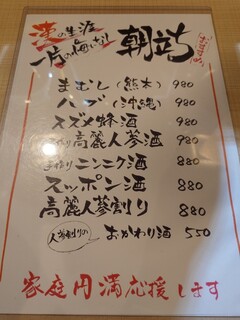 漢の生涯
一片の悔いなし
朝立ち
まむし(熊本) 980
ハブ(沖縄) 980
スズメ蜂酒 980
手作り高麗人蔘酒 980
手作りニンニク酒 880
スッポン酒 880
高麗人蔘割り 880
人蔘割りの おかわり酒 550
家庭円満応援します